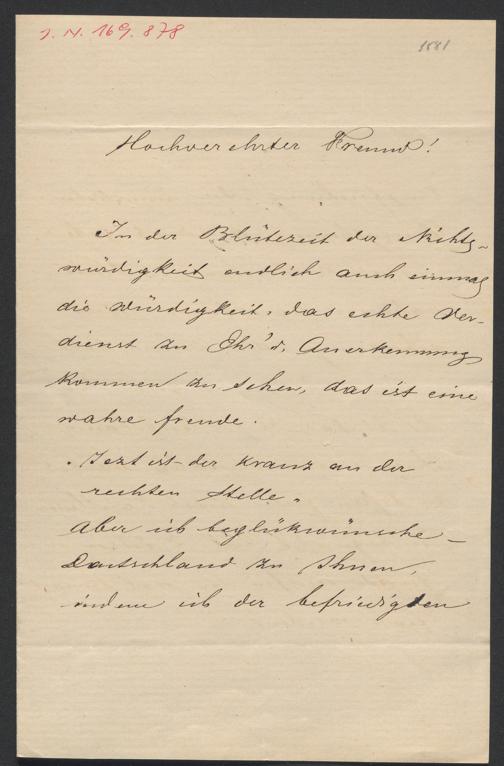 J. N. 169.878
1881
Hochverehrter Freund!
In der Blütezeit der Nichts-
würdigkeit endlich auch einmal
die Würdigkeit, das echte Ver-
dienst zu Ehr' u. Anerkennung
kommen zu sehen, das ist eine
wahre Freude.
„Jezt ist der Kranz an der
rechten Stelle„
Aber ich beglükwünsche –
Deutschland zu Ihnen,
indem ich der befriedigten